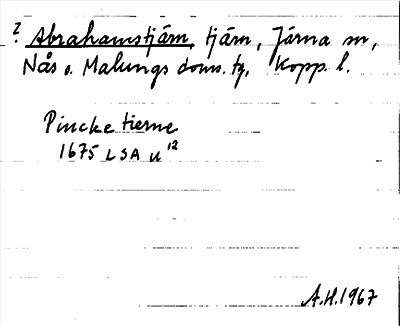 ? Abrahamstjärn, tjärn, Järna sn,
Nås o. Malungs doms. tg, Kopp. l.
Pincke tierne
1675 LSA U 12
A.H. 1967